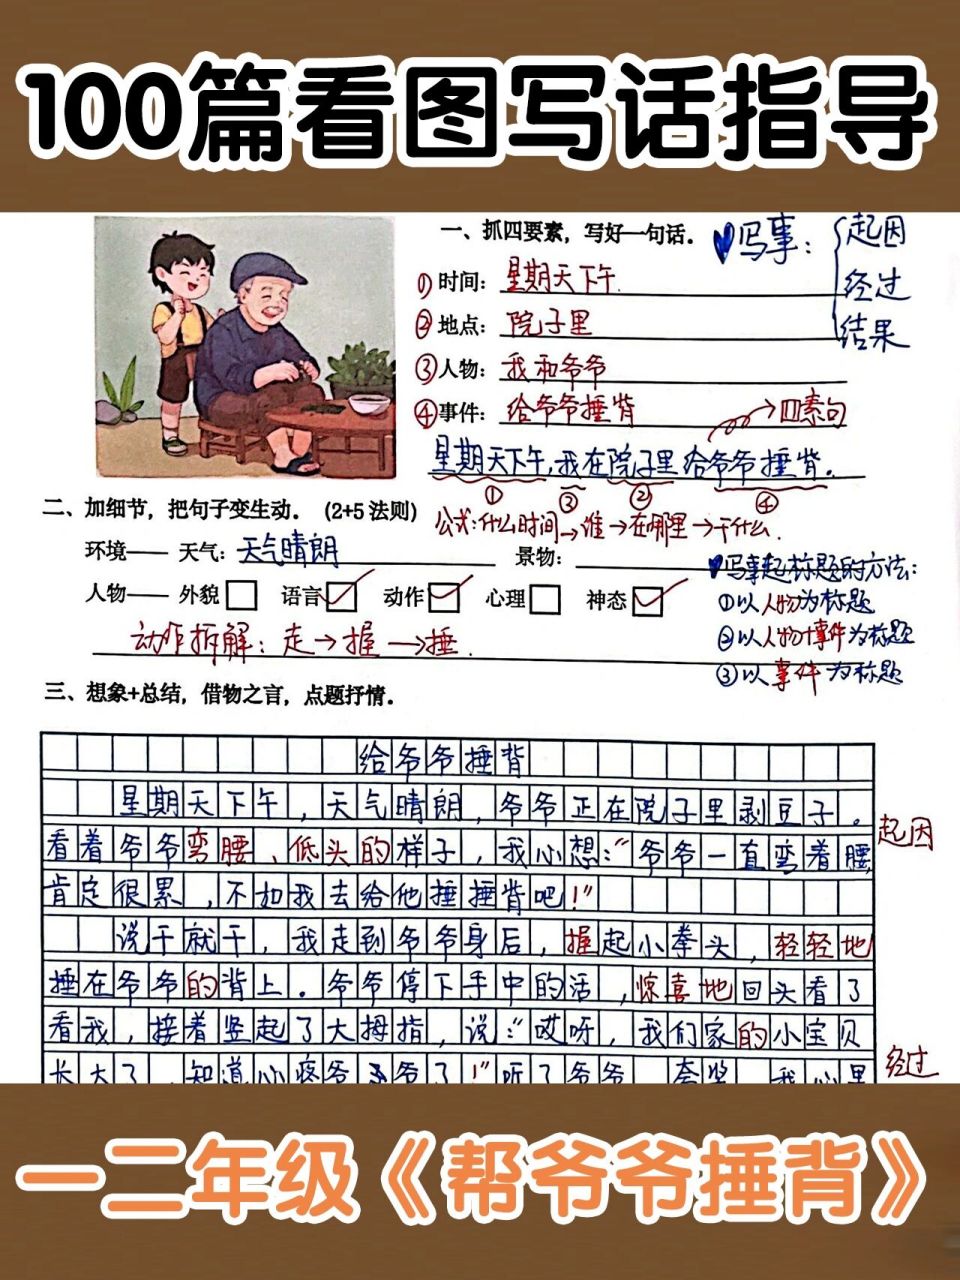 100篇看图写话指导
一、抓四要素，写好一句话。
写事：
起因
经过
结果
①时间：星期天下午.
②地点：院子里
③人物：我和爷爷
④事件：给爷爷捶背
→四素句
星期天下午，我在院子里给爷爷捶背.
① ③ ② ④
公式：什么时间→谁→在哪里→干什么.
二、加细节，把句子变生动。（2+5法则）
环境—— 天气：天气晴朗 景物：
人物—— 外貌 语言 动作 心理 神态
动作拆解：走→握→捶.
写事起标题的方法：
①以人物为标题
②以人物+事件为标题
③以事件为标题
三、想象+总结，借物之言，点题抒情。
给爷爷捶背
星期天下午，天气晴朗，爷爷正在院子里剥豆子。
看着爷爷弯腰、低头的样子，我心想：“爷爷一直弯着腰，
肯定很累，不如我去给他捶捶背吧！”
起因
说干就干，我走到爷爷身后，握起小拳头，轻轻地
捶在爷爷的背上。爷爷停下手中的活，惊喜地回头看了
看我，接着竖起了大拇指，说：“哎呀，我们家的小宝贝
长大了，知道心疼爷爷了！”听了爷爷 夸奖，我心里
经过
一二年级《帮爷爷捶背》